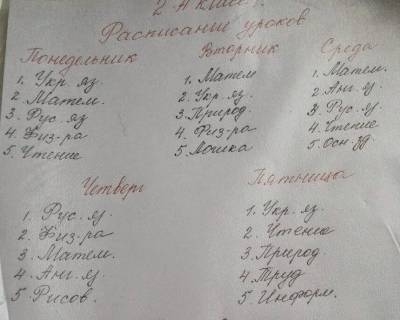 2 А класс.
Расписание уроков
Понедельник
1. Укр. яз.
2. Матем.
3. Рус. яз
4. Физ-ра
5. Чтение
Вторник
1. Матем
2. Укр. яз.
3. Природ.
4. Физ-ра
5. Логика
Среда
1. Матем.
2. Анг. яз.
3. Рус. яз.
4. Чтение
5. Осн. зд.
Четверг
1. Рус. яз.
2. Физ-ра
3. Матем.
4. Анг. яз.
5 Рисов.
Пятница
1. Укр. яз.
2. Чтение
3. Природ.
4. Труд
5. Информ.